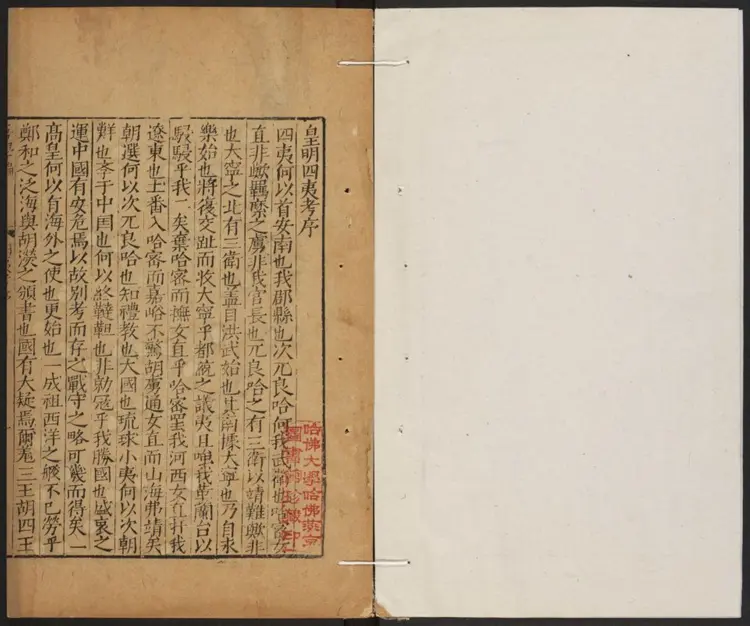 皇明四夷考序
四夷何以首安南也我郡縣也次兀良哈何我武衛也哈密女
直非歟羈縻之虜非我官長也兀良哈之有三衛以靖難歟非
也大寧之北有三衛也蓋自洪武始也其南據大寧也乃自永
樂始也將復交趾而收大寧乎都統之議夷且嗤我革蘭台以
駸駸乎我一矣棄哈密而撫女直乎哈密我河西女直扞我
遼東也土番入哈密而嘉峪不驚胡虜通女直而山海弗靖矣
朝選何以次兀良哈也知禮教也大國也琉球小夷何以次朝
鮮也于中国也何以終韃靼也非勍寇乎我勝國也盛衰之
運中國有安危焉以故別考而存之戰守之略可幾而得矣一
高皇何以有海外之使也更始也一成祖西洋之不已勞乎
鄭和之泛海與胡濙之頒書也國有大疑焉爾三王胡四王
哈佛大學哈佛燕京
圖書館珍藏印